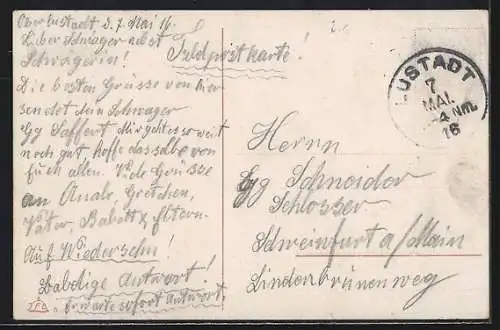 Oberlustadt d. 7. Mai 16.
Lieber Schwager nebst
Schwagerin!
Die besten Grüsse von hier
sendet dein Schwager
Gg Saffert. Mir geht es so weit
noch gut, hoffe dasselbe von
Euch allen. Viele Grüsse
an Gretchen,
Vater, Babett, Eltern.
Auf Wiedersehn!
Baldige Antwort!
Erwarte sofort Antwort.
Feldpostkarte!
LUSTADT
7
MAI.
-4 Nm.
16
Herrn
Gg Schneider
Schlosser
Schweinfurt a/Main
Lindenbrünnenweg